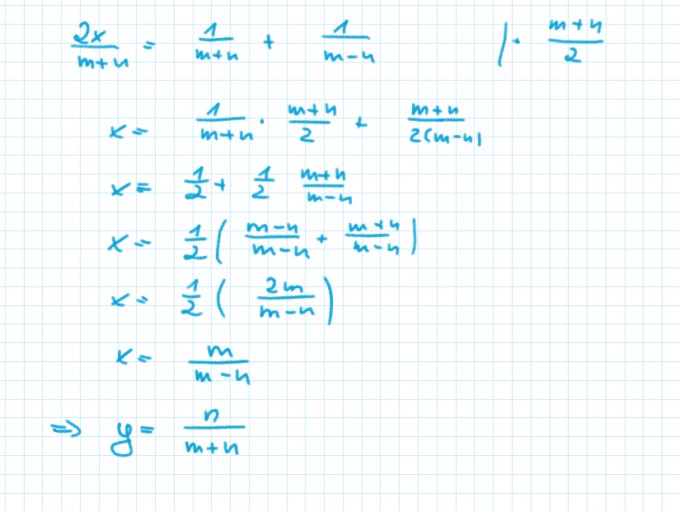 2x/(m+n) = 1/(m+n) + 1/(m-n) | · (m+n)/2
x = 1/(m+n) · (m+n)/2 + (m+n)/(2(m-n)
x = 1/2 + 1/2 (m+n)/(m-n)
x = 1/2 ( (m-n)/(m-n) + (m+n)/(m-n) )
x = 1/2 ( 2m/(m-n) )
x = m/(m-n)
⇒ y = n/(m+n)